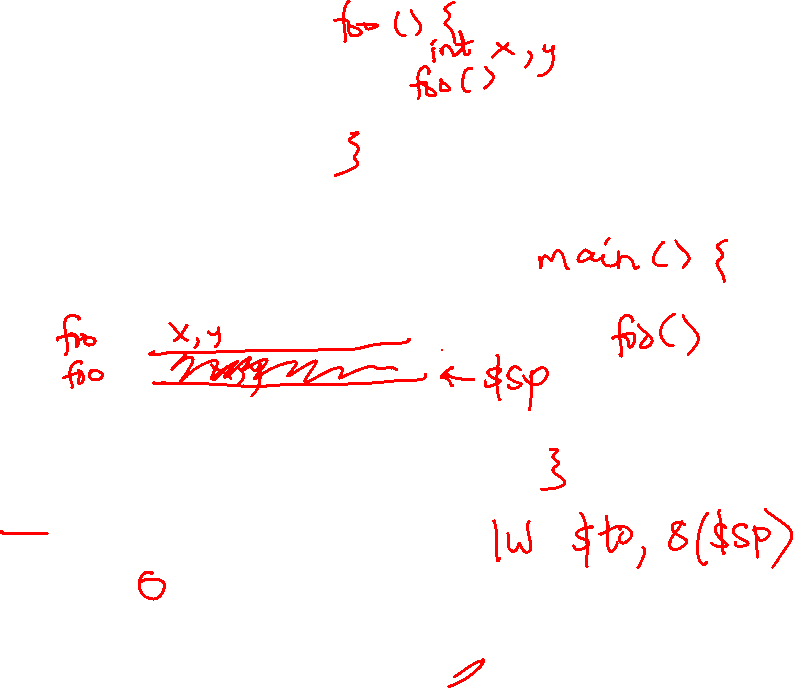 foo () {
int x, y
foo()
}
main () {
foo()
foo x, y
foo
← $sp
}
lw $t0, 8($sp)
0